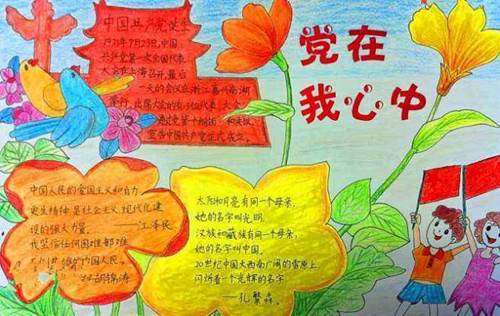 党在
我心中
中国共产党诞生
1921年7月23日,中国
共产党第一次全国代表
大会在上海召开,最后
一天的会议在浙江嘉兴南湖
举行,出席大会的有
代表,大会
通过党第十
和决议,
宣告中国共产党正式成立。
中国人民的爱国主义和自力
更生精神是社会主义现代化建
设的强大力量。
——江泽民
我坚信任何困难都难
中国人民。
——胡锦涛
太阳和月亮有同一个母亲,
她的名字叫光明,
汉族和藏族有同一个母亲,
她的名字叫中国。
20世纪中国大西南广阔的雪原上,
闪烁着一个光辉的名字
——孔繁森。